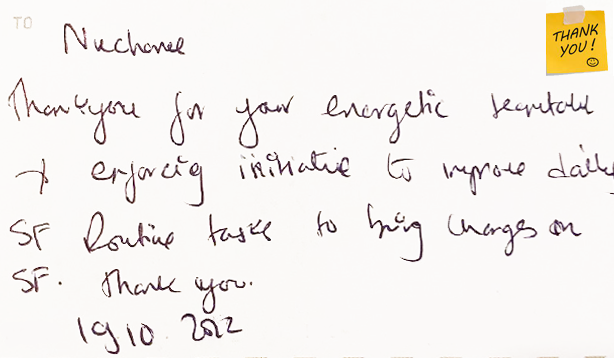 TO
THANK
YOU!
Nuchanee
Thank you for your energetic
& enforcing initiative to improve daily
SF Routine tasks to bring changes on
SF. Thank you.
19 10 2022